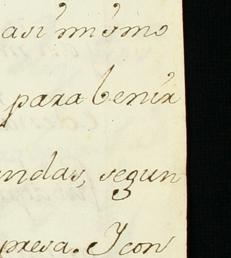 asi mismo
para benir
endas, segun
presa. Y con